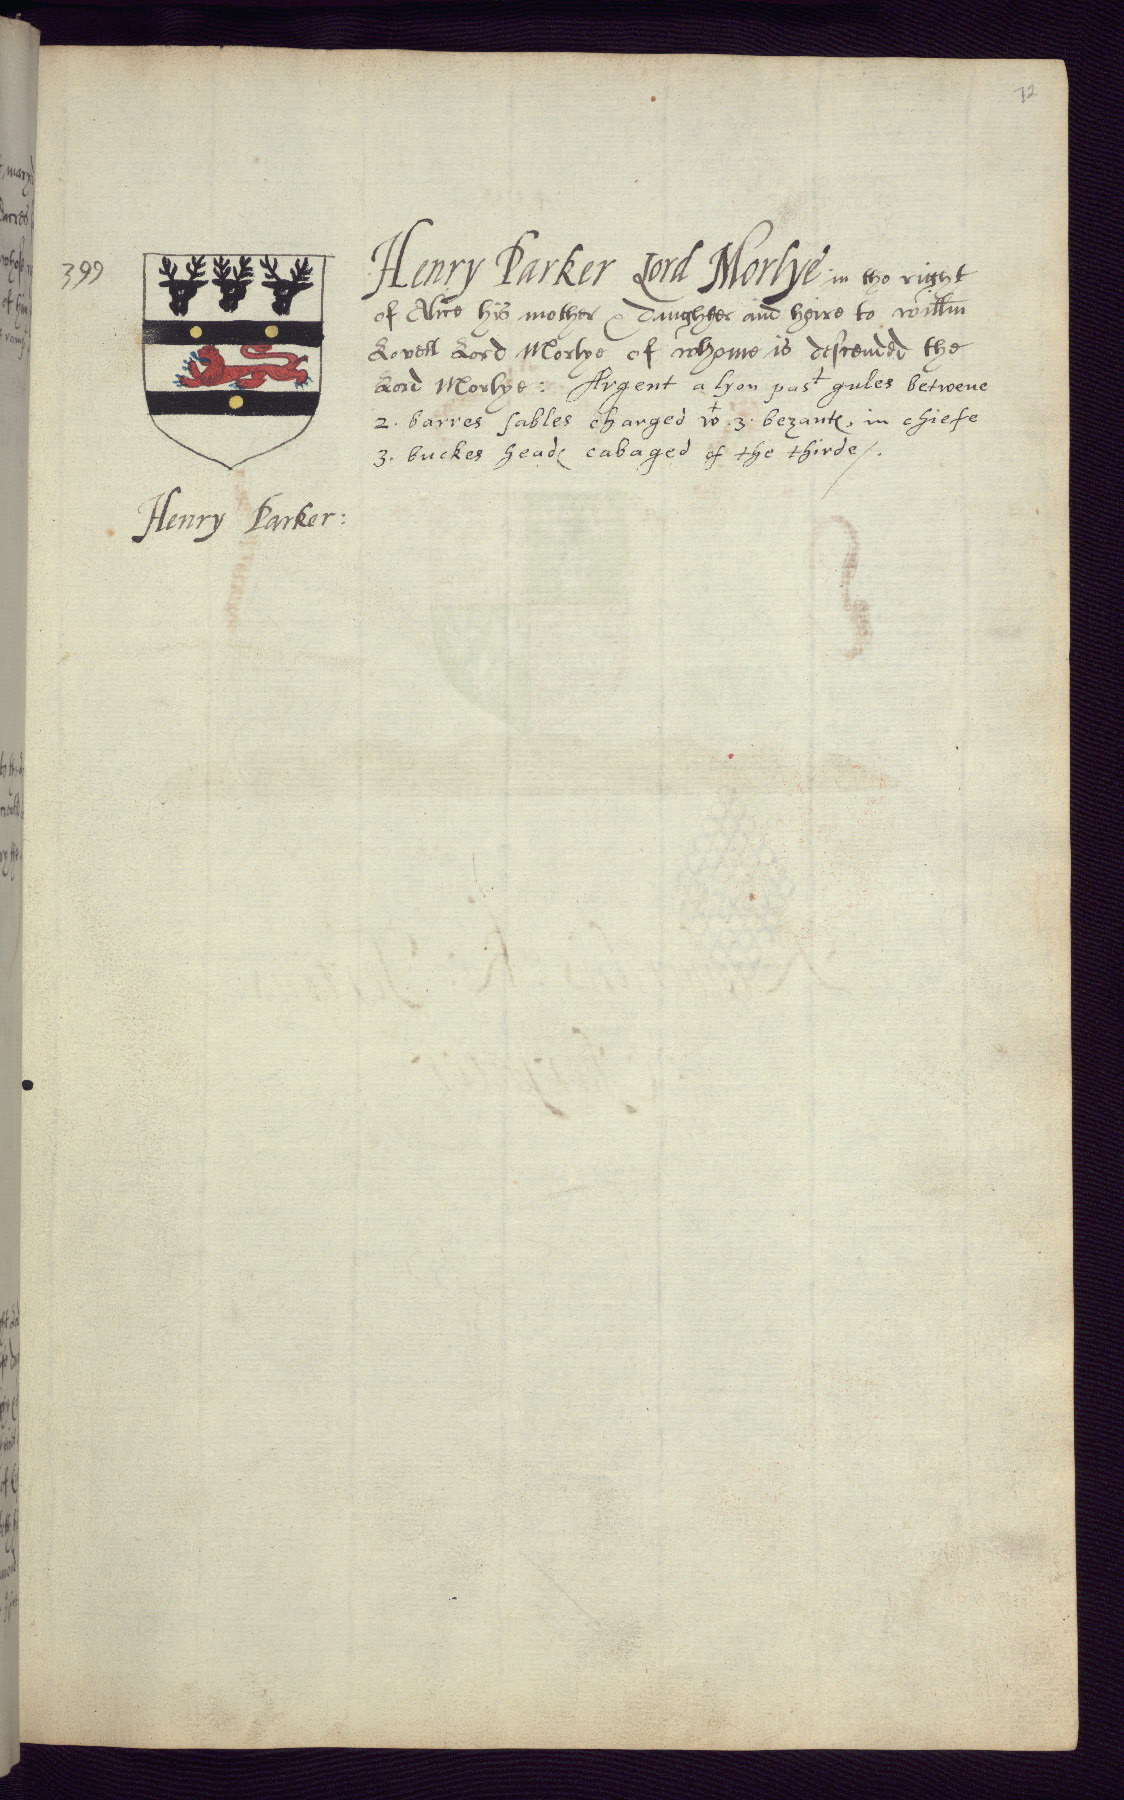 72
399
Henry Parker Lord Morlye in the right
of Alice his mother daughter and heire to willm
Lovell Lord Morlye of whome is descended the
Lord Morlye: Argent a lyon past gules betwene
2. barres sables charged wt .3. bezants, in chiefe
3. buckes heads cabaged of the thirde/.
Henry Parker: